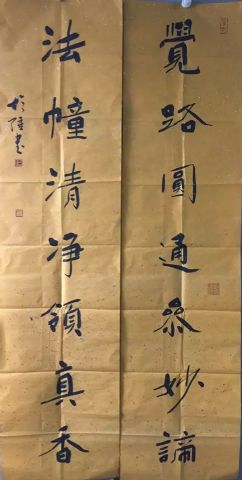 覺路圓通參妙諦
法幢清净領真香